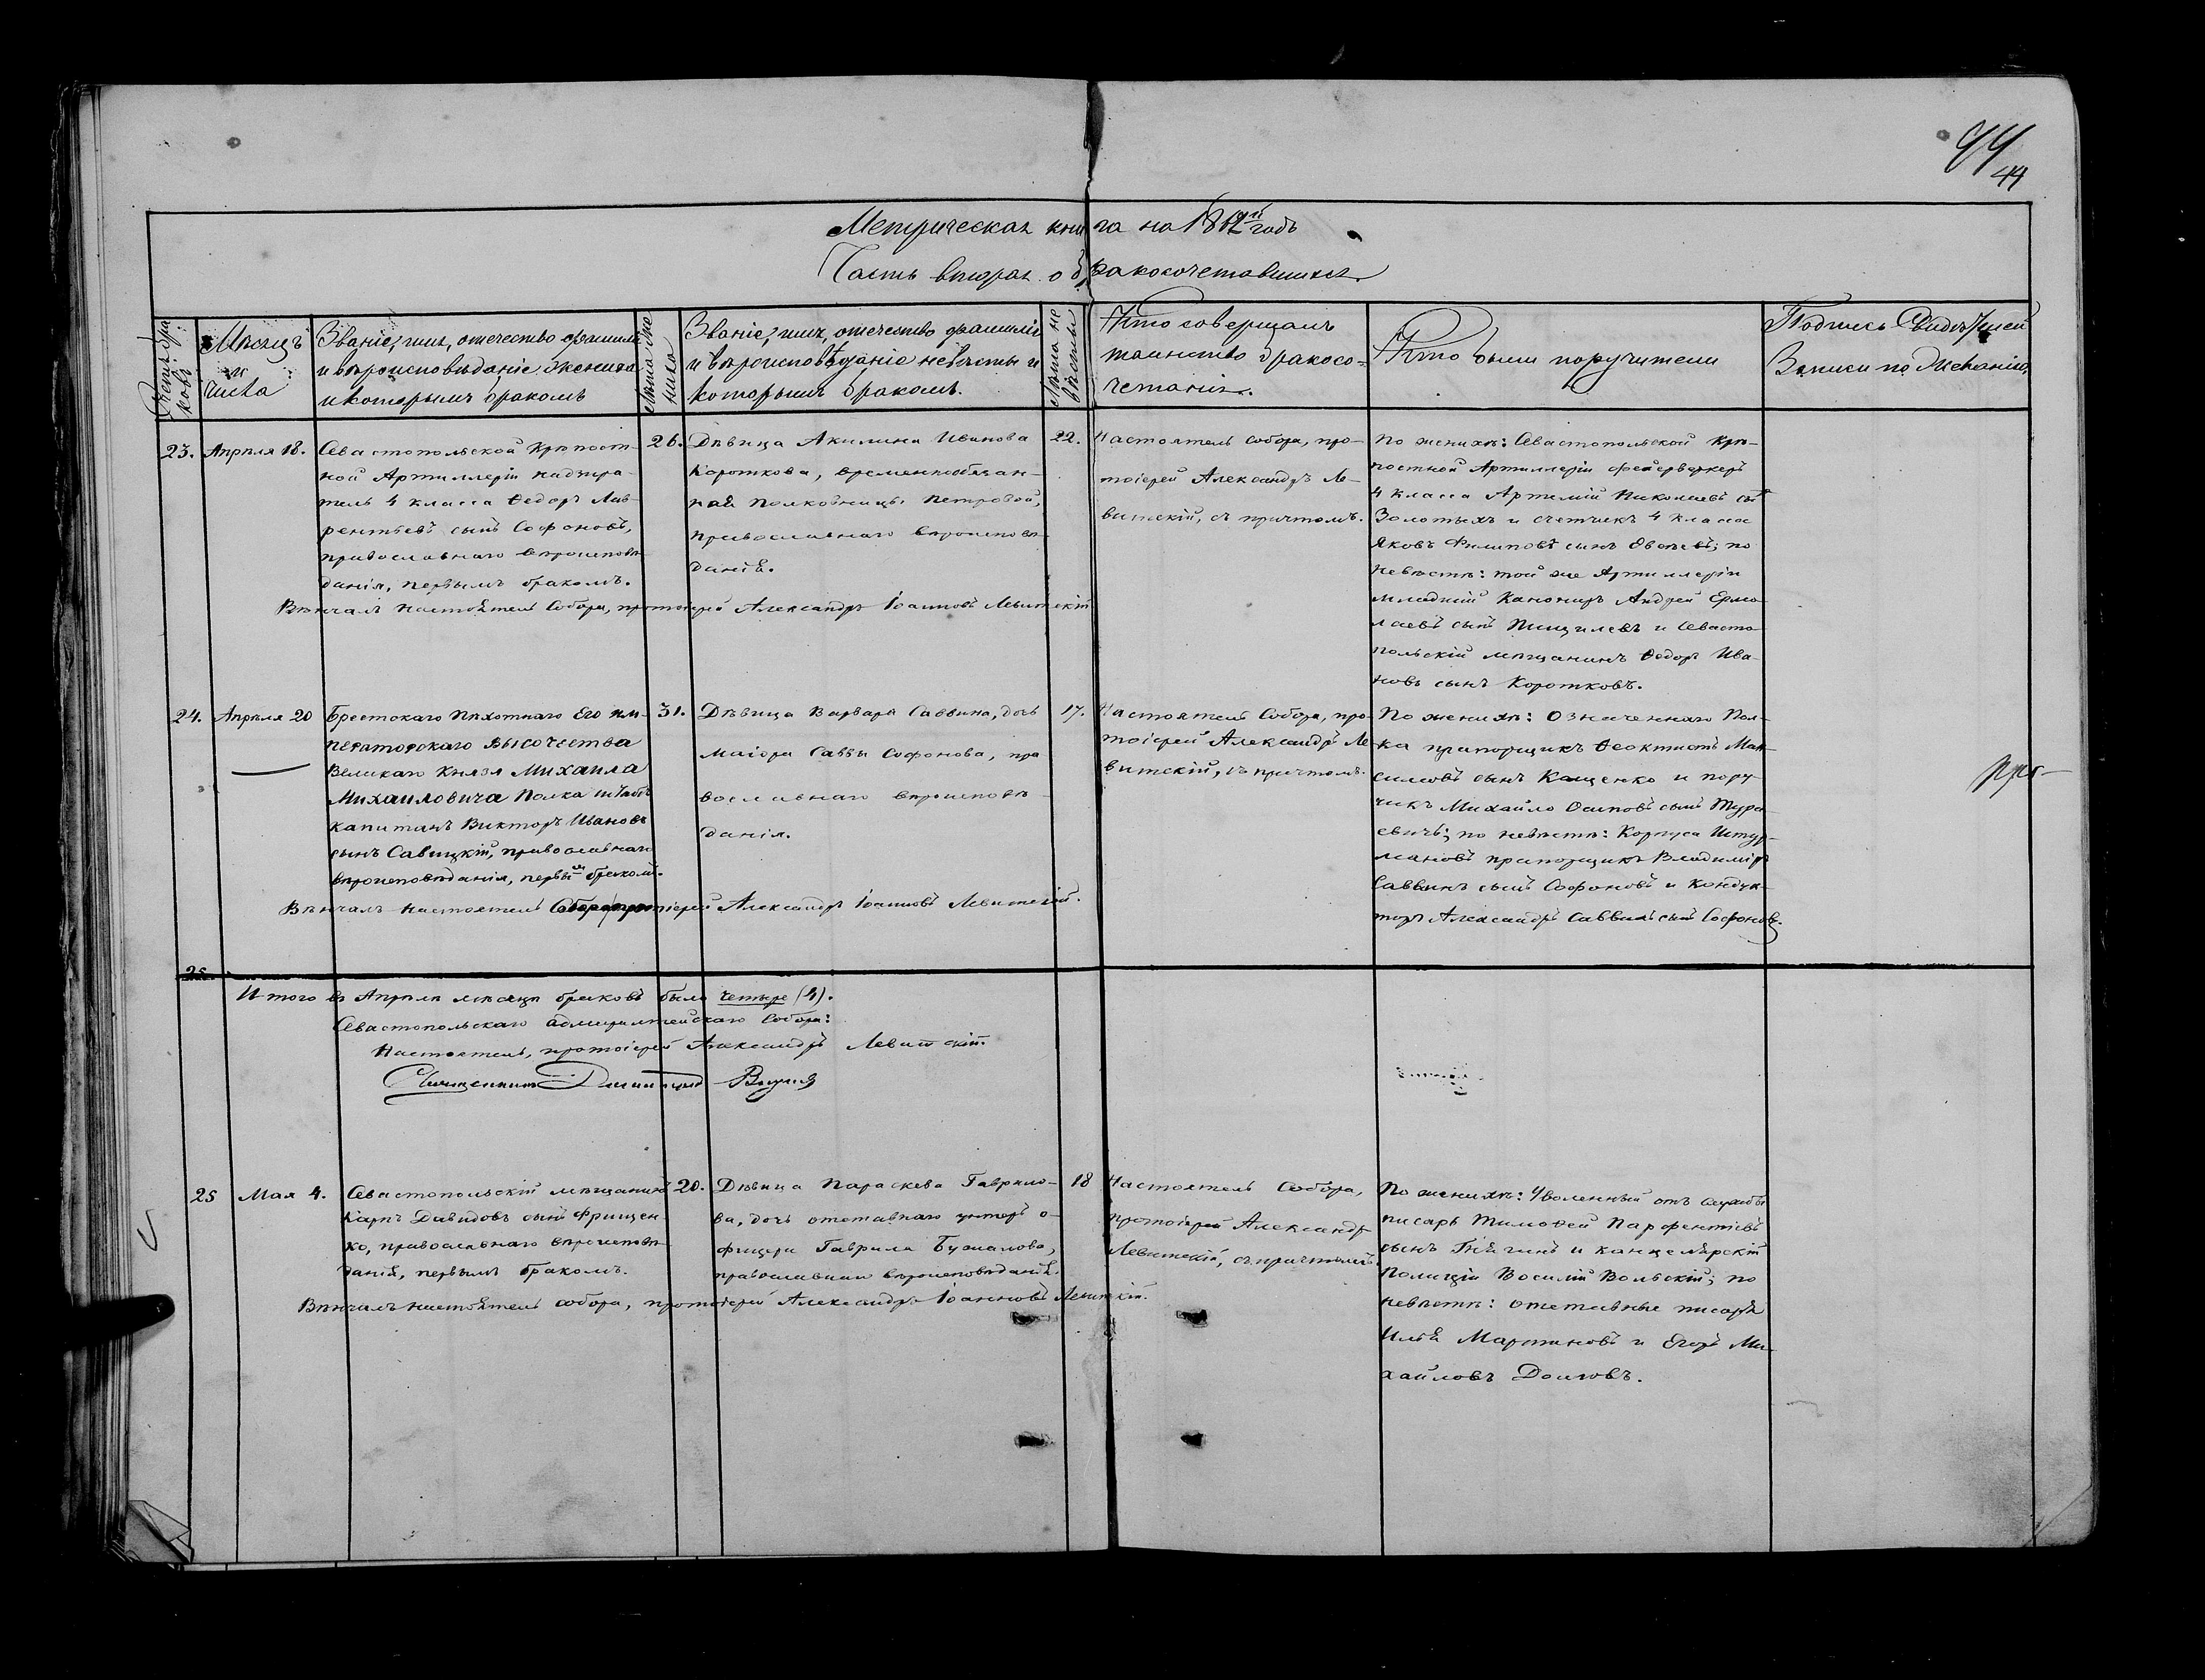 44
44
Метрическая книга на 1862й годъ
Часть вторая о бракосочетавшихся
Счетъ бра-
ковъ
Мѣсяцъ
и
числа
Званіе, имя, отечество фамилія
и вѣроисповѣданіе жениха
и которымъ бракомъ
Лѣта же
ниха
Званіе, имя, отечество фамилія
и вѣроисповѣданіе невѣсты и
которымъ бракомъ.
Лѣта не
вѣсты
Кто совершалъ
таинство бракосо-
четанія.
Кто были поручители
Подпись Свидѣтелей
Записи по желанію
23.
Апрѣля 18.
Севастопольской Крѣпост-
ной Артиллеріи надзира-
тель 4 класса Ѳедоръ Лав-
рентьевъ сынъ Софоновъ,
православнаго вѣроисповѣ-
данія, первымъ бракомъ.
26.
Дѣвица Акилина Иванова
Короткова, временнообязан-
ная Полковницы Петровой,
православнаго вѣроисповѣ-
данія.
22.
Настоятель собора, про-
тоіерей Александръ Ле-
витскій, съ причтомъ.
По женихѣ: Севастопольской крѣ-
постной Артиллеріи фейерверкеръ
4 класса Артемій Николаевъ сынъ
Золотыхъ и счетчикъ 4 класса
Яковъ Филиповъ сынъ по
невѣстѣ: той же Артиллеріи
младшій Канониръ Андрей Ермо-
лаевъ сынъ Пищилевъ и Севасто-
польскій мѣщанинъ Ѳедоръ Ива-
новъ сынъ Коротковъ.
Вѣнчалъ настоятель Собора, протоіерей Александръ Іоанновъ Левитскій
24.
Апрѣля 20
Брестскаго Пѣхотнаго Его Им-
ператорскаго Высочества
Великаго Князя Михаила
Михаиловича Полка штабсъ
капитанъ Викторъ Ивановъ
сынъ Савицкій, православнаго
вѣроисповѣданія, первымъ бракомъ.
31.
Дѣвица Варвара Саввина, дочь
маіора Саввы Софонова, пра
вославнаго вѣроисповѣ-
данія.
17.
Настоятель Собора, про-
тоіерей Александръ Ле-
витскій, съ причтомъ.
По женихѣ: Означеннаго Пол-
ка прапорщикъ Ѳеоктистъ Мак-
симовъ сынъ Кащенко и пору-
чикъ Михайло Осиповъ сынъ Тура-
евичъ; по невѣстѣ: Корпуса Штур-
мановъ прапорщикъ Владиміръ
Саввинъ сынъ Софоновъ и Кондук-
торъ Александръ Саввинъ сынъ Софоновъ.
Вѣнчалъ настоятель Собора, протоіерей Александръ Іоанновъ Левитскій.
25.
Итого въ Апрѣлѣ мѣсяцѣ браковъ было четыре (4).
Севастопольскаго адмиралтейскаго Собора:
Настоятель, протоіерей Александръ Левитскій.
Священникъ Димитрій
25
Мая 4.
Севастопольскій мѣщанинъ
Карпъ Давидовъ сынъ Фрищен-
ко, православнаго вѣроисповѣ-
данія, первымъ бракомъ.
20.
Дѣвица Параскева Гаврило-
ва, дочь отставнаго унтеръ о-
фицера Гаврила Бужалова,
православнаго вѣроисповѣданія.
18
Настоятель Собора,
протоіерей Александръ
Левитскій, съ причтомъ.
По женихѣ: Уволенный отъ службы
писарь Тимоѳей Парфентіевъ
сынъ и канцелярскій
Полиціи Василій Вольскій; по
невѣстѣ: отставные писаря
Илья Мартиновъ и Егоръ Ми-
хайловъ Долговъ.
Вѣнчалъ настоятель собора, протоіерей Александръ Іоанновъ Левитскій.